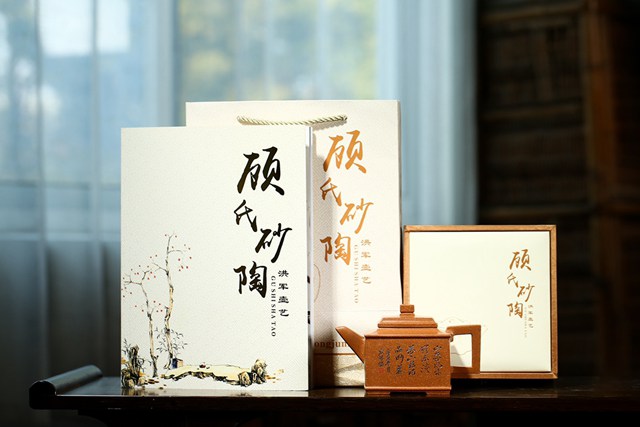 顾氏砂陶
洪军壶艺
GU SHI SHA TAO
顾氏砂陶
洪军壶艺
GU SHI SHA TAO
ongjun
顾氏砂陶
洪军壶艺